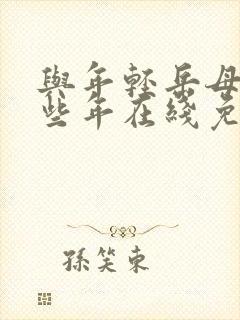 與年輕岳母
些年在綫免
孫笑東